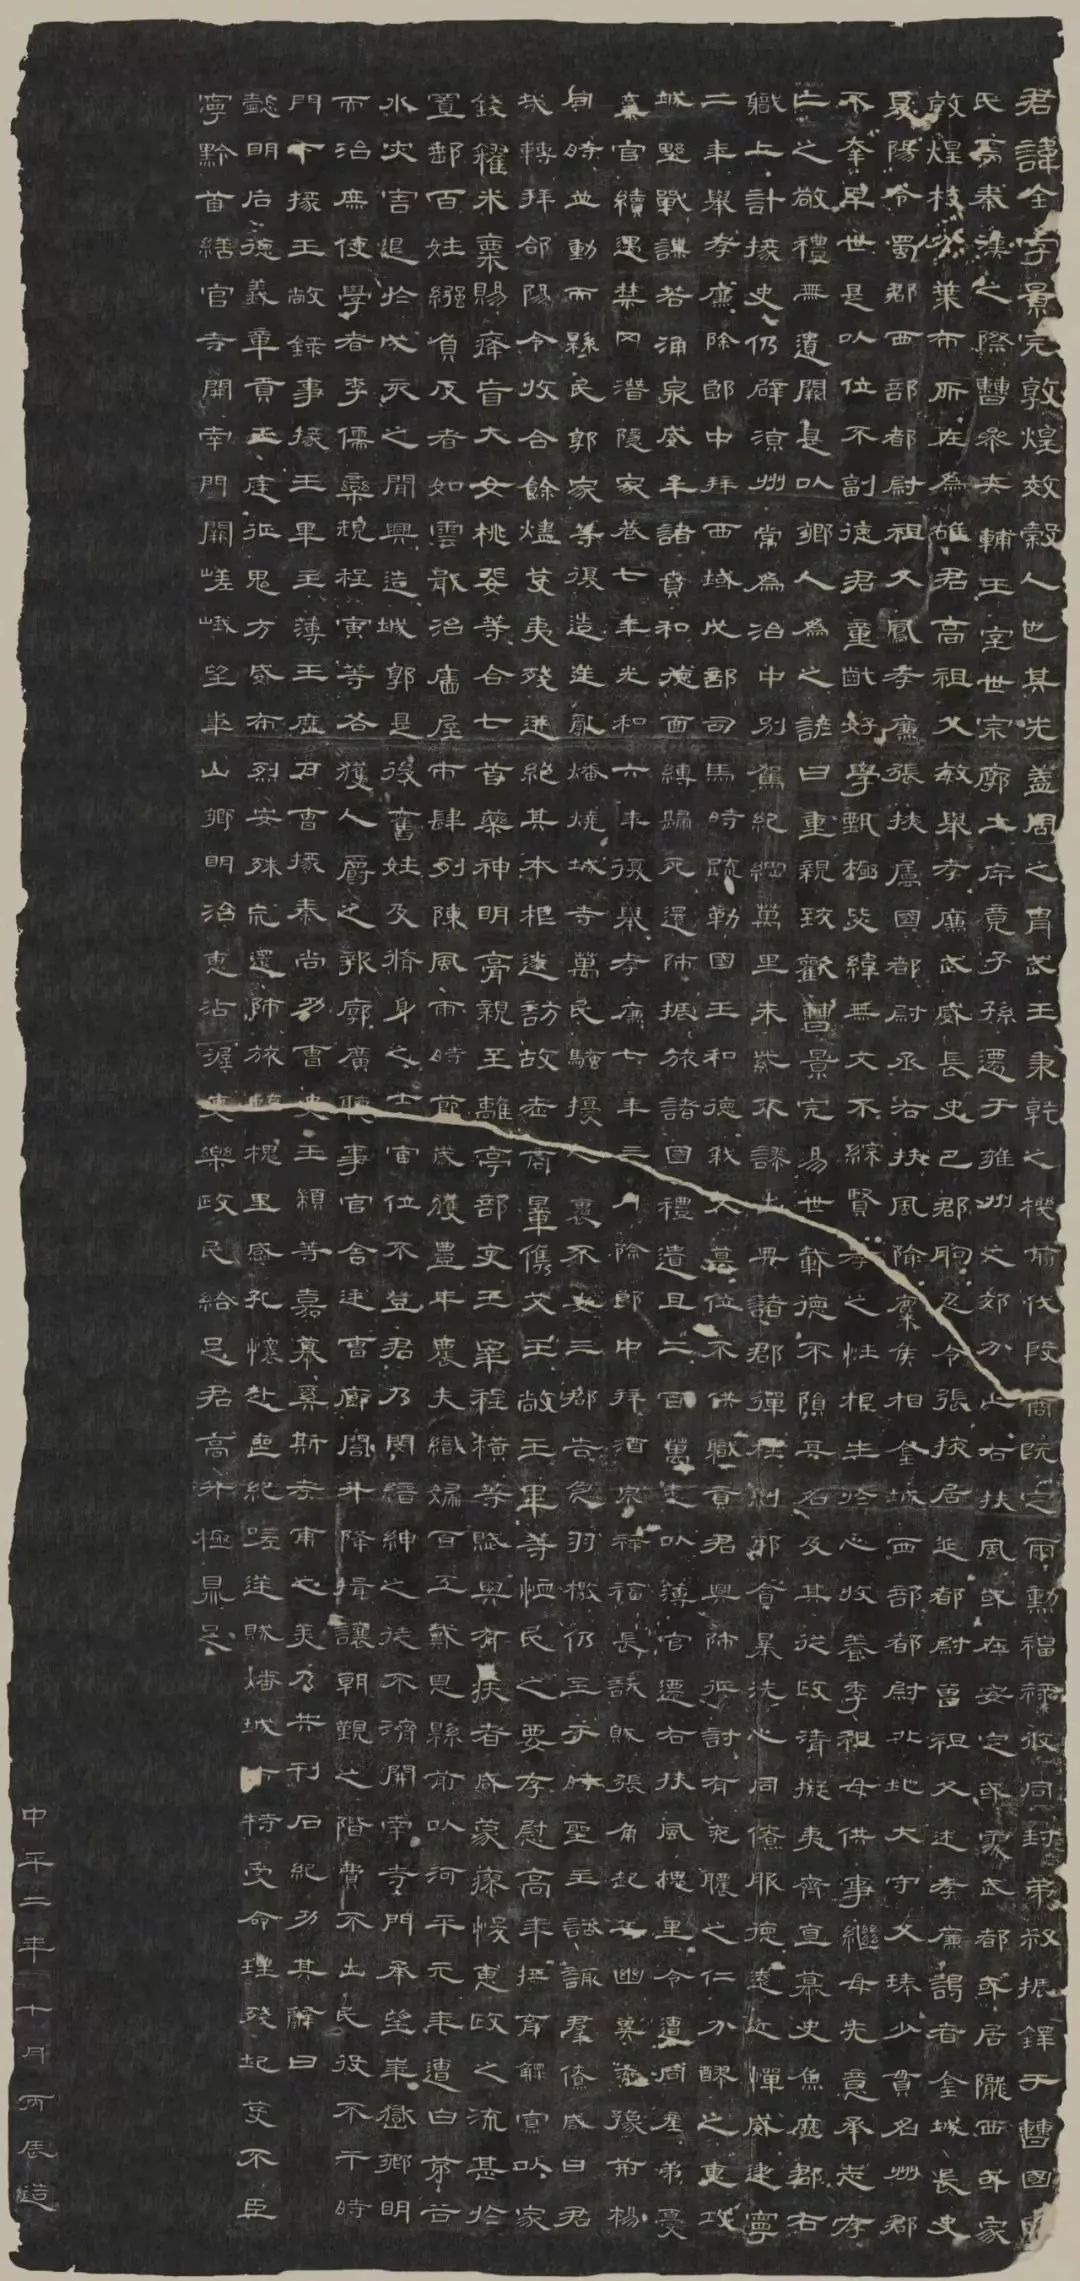 君諱全字景完敦煌效穀人也其先蓋周之胄武王秉乾之機翦伐殷商既定爾勳福祿攸同封弟叔振鐸于曹國因
氏焉秦漢之際曹參夾輔王室世宗廓土斥竟子孫遷于雍州之郊分止右扶風或在安定或處武都或居隴西或家
敦煌枝分葉布所在為雄君高祖父敏舉孝廉武威長史巴郡朐忍令張掖居延都尉曾祖父述孝廉謁者金城長史
夏陽令蜀郡西部都尉祖父鳳孝廉張掖屬國都尉丞右扶風隃麋侯相金城西部都尉北地大守父琫少貫名州郡
不幸早世是以位不副德君童齔好學甄極毖緯無文不綜賢孝之性根生於心收養季祖母供事繼母先意承志存
亡之敬禮無遺闕是以鄉人為之諺曰重親致歡曹景完易世載德不隕其名及其從政清擬夷齊直慕史魚歷郡右
職上計掾史仍辟涼州常為治中別駕紀綱萬里朱紫不謬出典諸郡彈枉糾邪貪暴洗心同僚服德遠近憚威建寧
二年舉孝廉除郎中拜西域戊部司馬時疏勒國王和德弒父篡位不供職貢君興師征討有兗膿之仁分醪之惠攻
城野戰謀若涌泉威牟諸賁和德面縛歸死還師振旅諸國禮遺且二百萬悉以簿官遷右扶風槐里令遭同產弟憂
棄官續遇禁冈潛隱家巷七年光和六年復舉孝廉七年三月除郎中拜酒泉祿福長訞賊張角起兵幽冀兗豫荊楊
同時並動而縣民郭家等復造逆亂燔燒城寺萬民騷擾人裹不安三郡告急羽檄仍至于時聖主諮諏群僚咸曰君
哉轉拜郃陽令收合餘燼芟夷殘迸絕其本根遂訪故老商量儁艾王敞王畢等恤民之要存慰高年撫育鰥寡以家
錢糴米粟賜癃盲大女桃婓等合七首藥神明膏親至離亭部吏王宰程橫等賦與有疾者咸蒙瘳悛惠政之流甚於
置郵百姓繦負反者如雲戢治廧屋市肆列陳風雨時節歲獲豐年農夫織婦百工戴恩縣前以河平元年遭白茅谷
水災害退於戊亥之間興造城郭是後舊姓及脩身之士官位不登君乃閔縉紳之徒不濟開南寺門承望華嶽鄉明
而治庶使學者李儒欒規程寅等各獲人爵之報廓廣聽事官舍廷曹廊閤升降揖讓朝覲之階費不出民役不干時
門下掾王敞錄事掾王畢主簿王歷戶曹掾秦尚功曹史王顓等嘉慕奚斯考甫之美乃共刊石紀功其辭曰
懿明后德義章貢王庭征鬼方威布烈安殊荒還師旅臨槐里感孔懷赴喪紀嗟逆賊燔城市特受命理殘圮芟不臣
寧黔首繕官寺開南門闕嵯峨望華山鄉明治惠沾渥吏樂政民給足君高升極鼎足
中平二年十月丙辰造